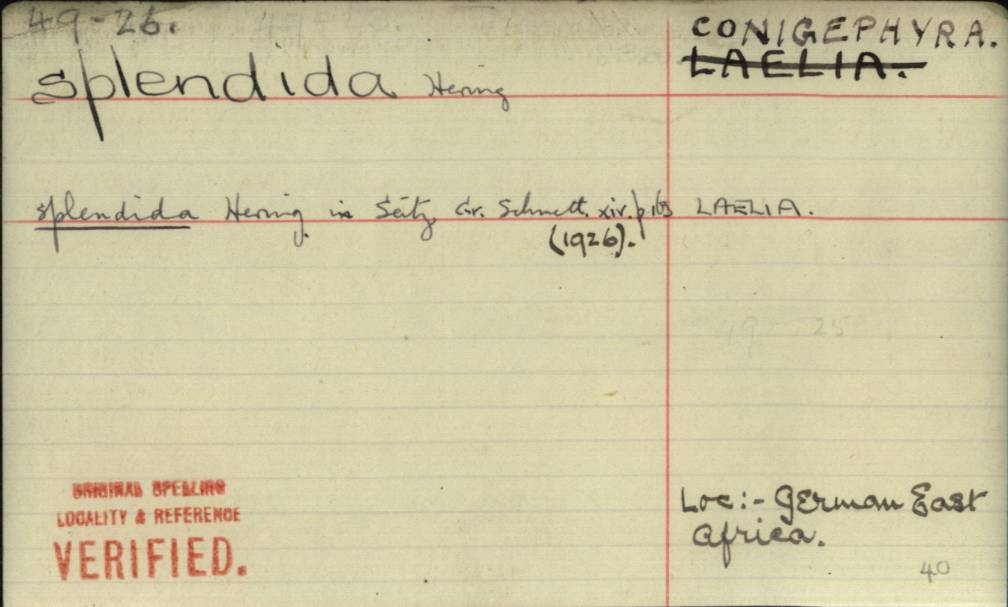 49-26.
CONIGEPHYRA.
LAELIA.
splendida Hering
splendida Hering in Seitz Gr. Schmett. xiv. p 165 LAELIA.
(1926).
49 25
ORIGINAL SPELLING
LOCALITY & REFERENCE
VERIFIED.
Loc:- German East
Africa.
40